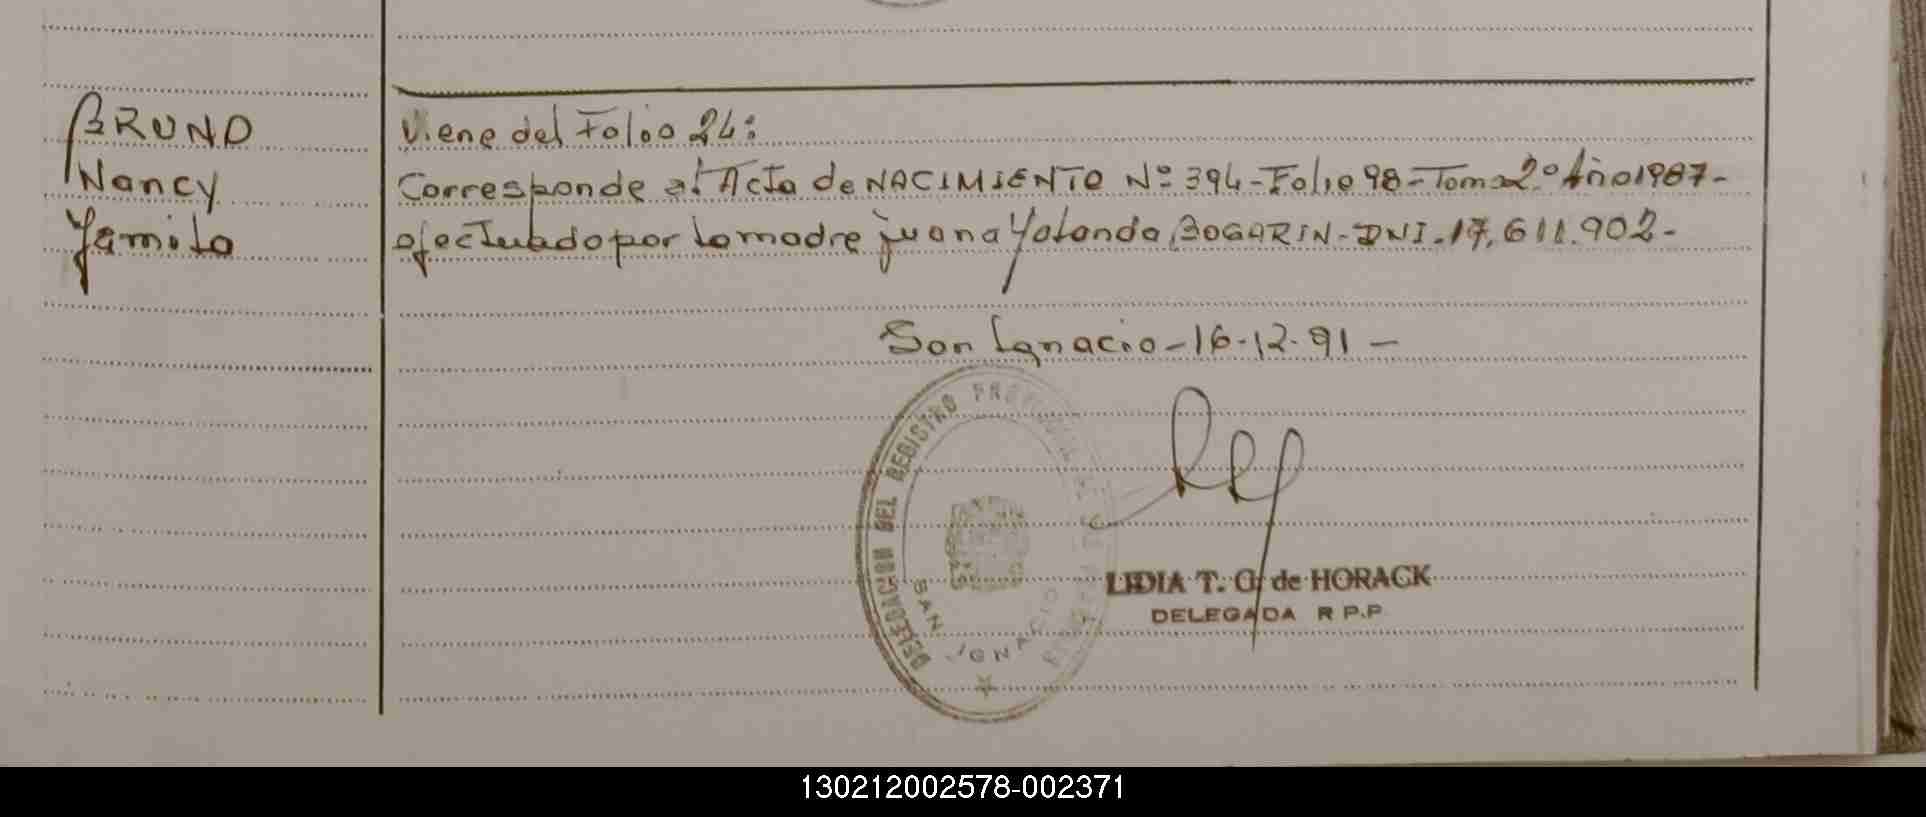 BRUNO
Nancy
Yamila
Viene del Folio 24:
Corresponde al Acta de NACIMIENTO Nº 394 - Folio 98 - Tomo 2º Año 1987 -
efectuado por la madre Juana Yolanda BOGARIN - DNI. 17.611.902 -
San Ignacio - 16-12-91 -
DELEGACION DEL REGISTRO PROVINCIAL DE
SAN IGNACIO
LIDIA T. G. de HORACK
DELEGADA R P.P.
130212002578-002371